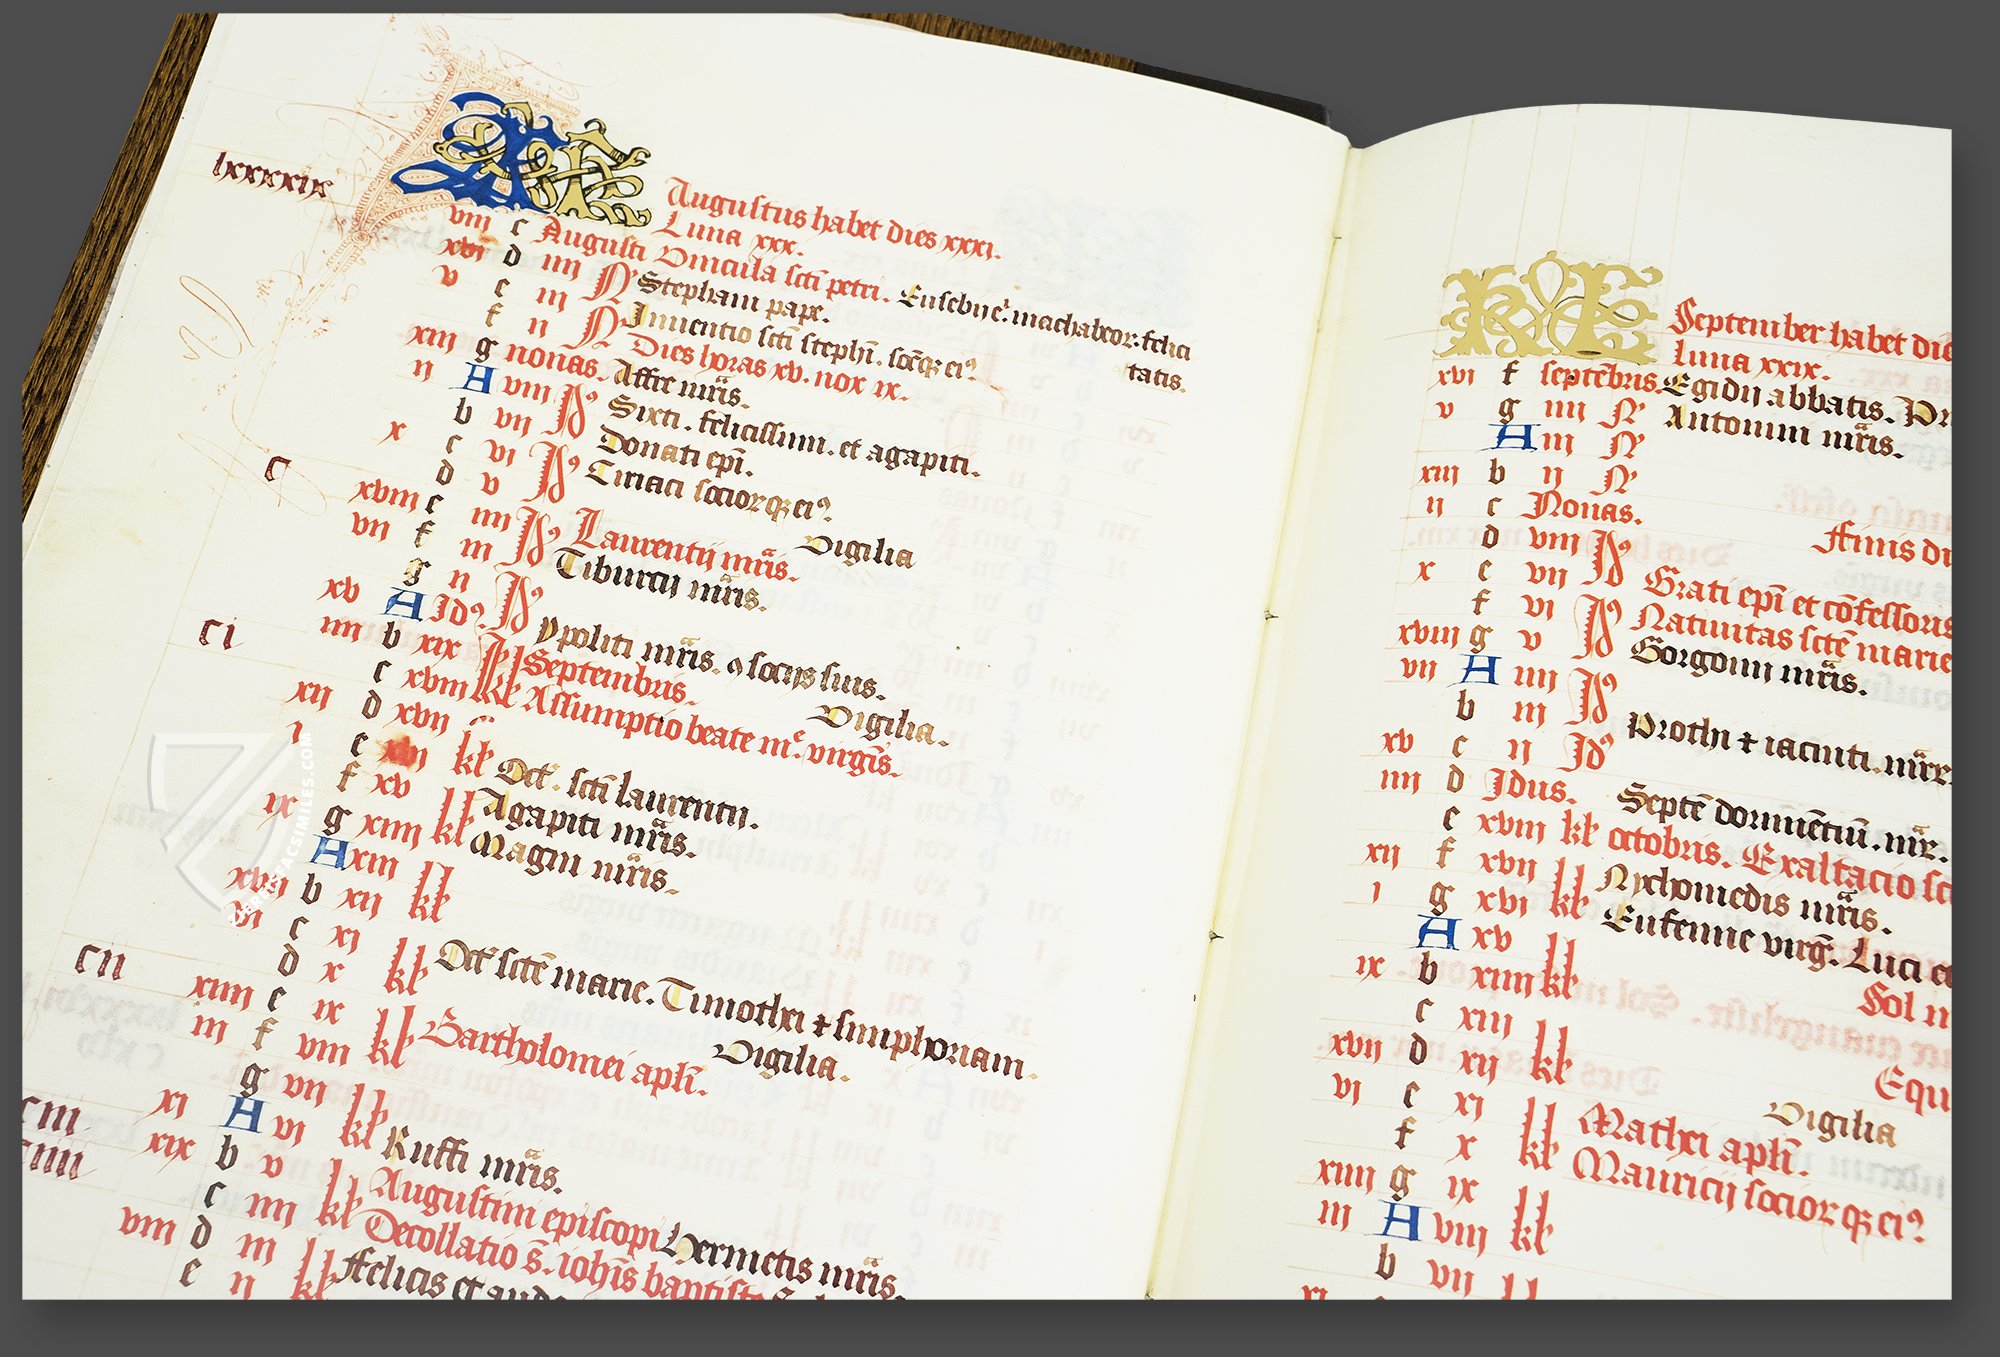 lxxxxix
Augustus habet dies xxxi.
Luna xxx.
viii c Augusti Vincula scti petri. Eusebii et machabeor. felici
tatis.
xvi d iiii N Stephani pape.
v e iii N Inuentio scti stephi. socq ei9
f ii N Dies horas xv. nox ix.
xiii g nonas. Affre mris.
ii A viii Id9 Sixti. felicissimi. et agapiti.
b vii Id9 Donati epi.
x c vi Id9 Ciriaci sociorq ei9.
c
d v Id9 Vigilia
xviii e iiii Id9 Laurentij mris.
vii f iii Id9 Tiburtij mris.
g ii Id9
xv A Id9. Ypoliti mris. 9 socijs suis.
ci
iiii b xix kl Septembris. Vigilia.
c xviii kl Assumptio beate me. virgis.
xii d xvii kl
i e xvi kl Oct. scti laurentij.
f xv kl Agapiti mris.
ix g xiiii kl Magni mris.
A xiii kl
xvii b xii kl
vi c xi kl Oct scte marie. Timothei & simphoriani.
cii
d x kl Vigilia.
xiiii e ix kl Bartholomei apli.
iii f viii kl
g vii kl
ciii
xi A vi kl Ruffi mris.
ciiii
xix b v kl Augustini episcopi Hermetis mris.
c iiii kl Decollatio s. iohis baptiste
viii d iii kl Felicis et
e ii kl
September habet die
luna xxix.
xvi f septebris. Egidij abbatis.
v g iiii N Antonini mris.
A iii N
xiii b ii N
ii c Nonas.
d viii Id9 Finis di
x e vii Id9 Grati epi et cofessoris
f vi Id9 Natiuitas scte marie
xviii g v Id9 Gorgonij mris.
vii A iiii Id9
b iii Id9 Prothi & iacinti. mr
xv c ii Id9
iiii d Idus. Septe dormietiu. mr.
e xviii kl octobris. Exaltacio sc
xii f xvii kl Nychomedis mris.
i g xvi kl Eufemie virg. Luci e
A xv kl
ix b xiiii kl Sol in
c xiii kl
xvii d xii kl Equi
vi e xi kl Vigilia
f x kl Mathei apli.
xiiii g ix kl Mauricij sociorq ei9
iii A viii kl
b vii
ZIEREIS FACSIMILES.COM